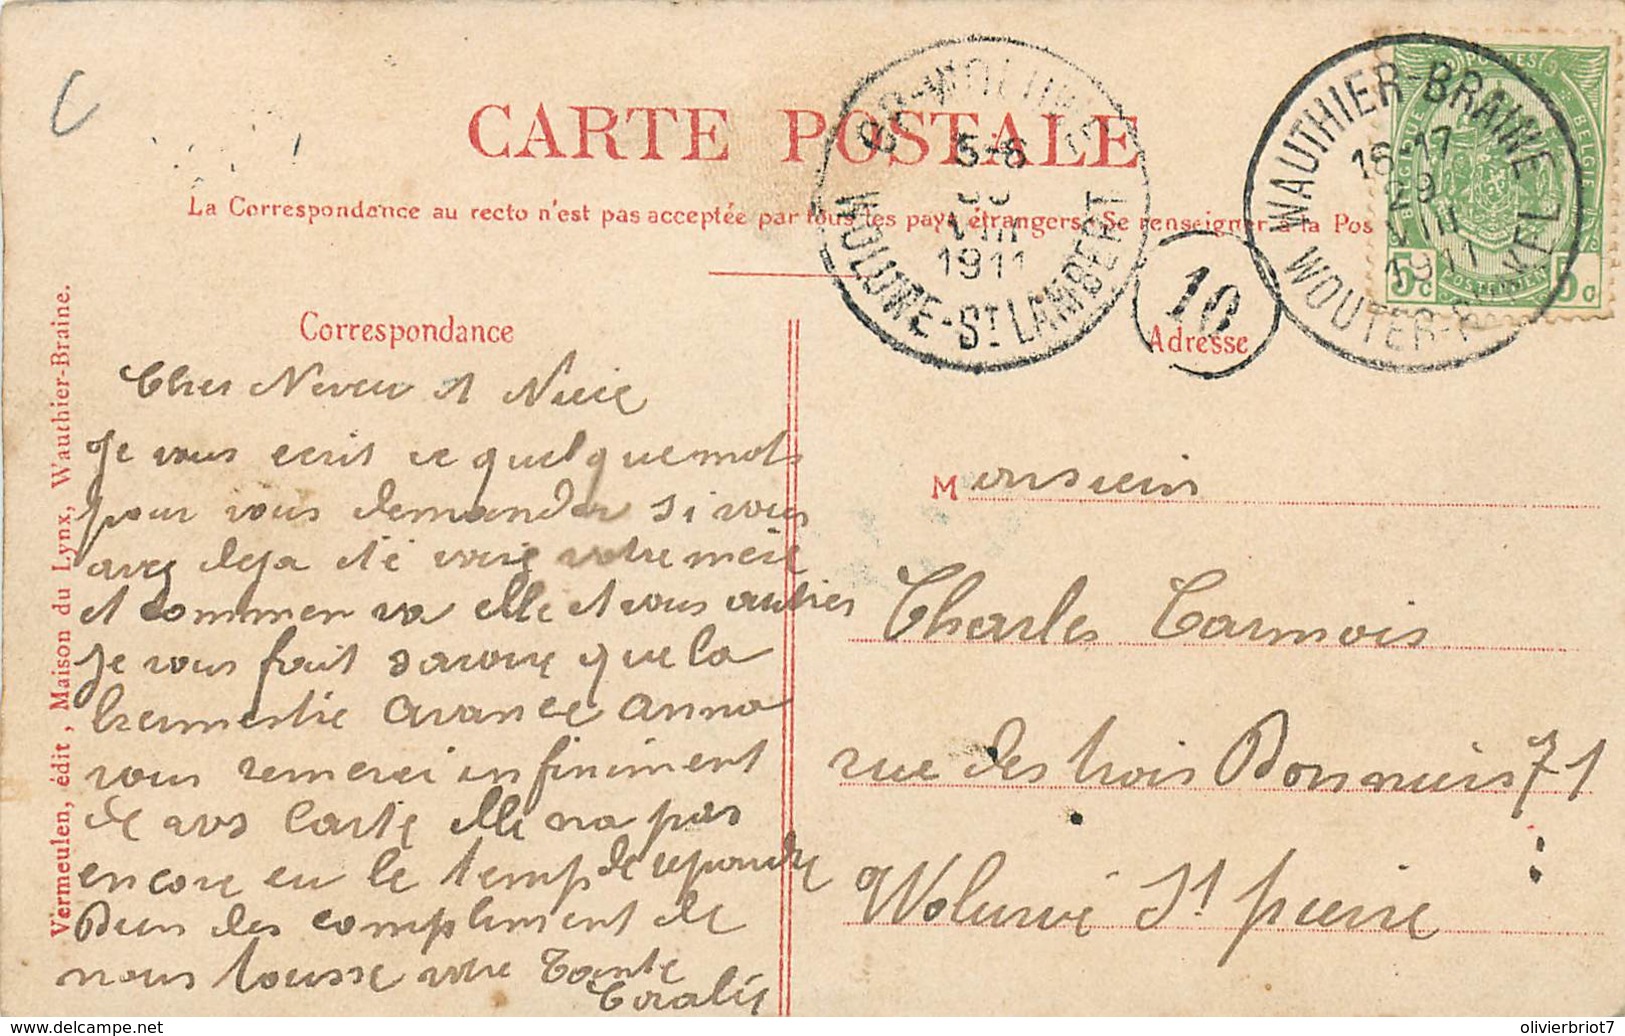 CARTE POSTALE
La Correspondance au recto n'est pas acceptée par tous les pays étrangers. Se renseigner à la Pos
ST-WOLUWE
5-6
VIII
1911
WOLUWE-ST LAMBERT
10
WAUTHIER-BRAINE
16-17
29
VIII
1911
WOUTER-BRAKEL
POSTES
BELGIQUE
BELGIE
POSTERIJEN
5c 5c
Vermeulen, édit, Maison du Lynx, Wauthier-Braine.
Correspondance
Cher Neveu et Niéce
Je vous ecrit ce quelque mots
pour vous demander si vous
avez deja eté voir votre mére
et commen va elle et vous autres
je vous fait savoir que la
kermesse avance anna
vous remerci infiniment
de vos carte elle na pas
encore eu le temp de repondre
Bien des compliment de
nous tousse votre Tante
Coralie
Adresse
Monsieur
Charles Carmois
rue des trois Bonniers 71
Woluwé St pierre
delcampe.net
olivierbriot7